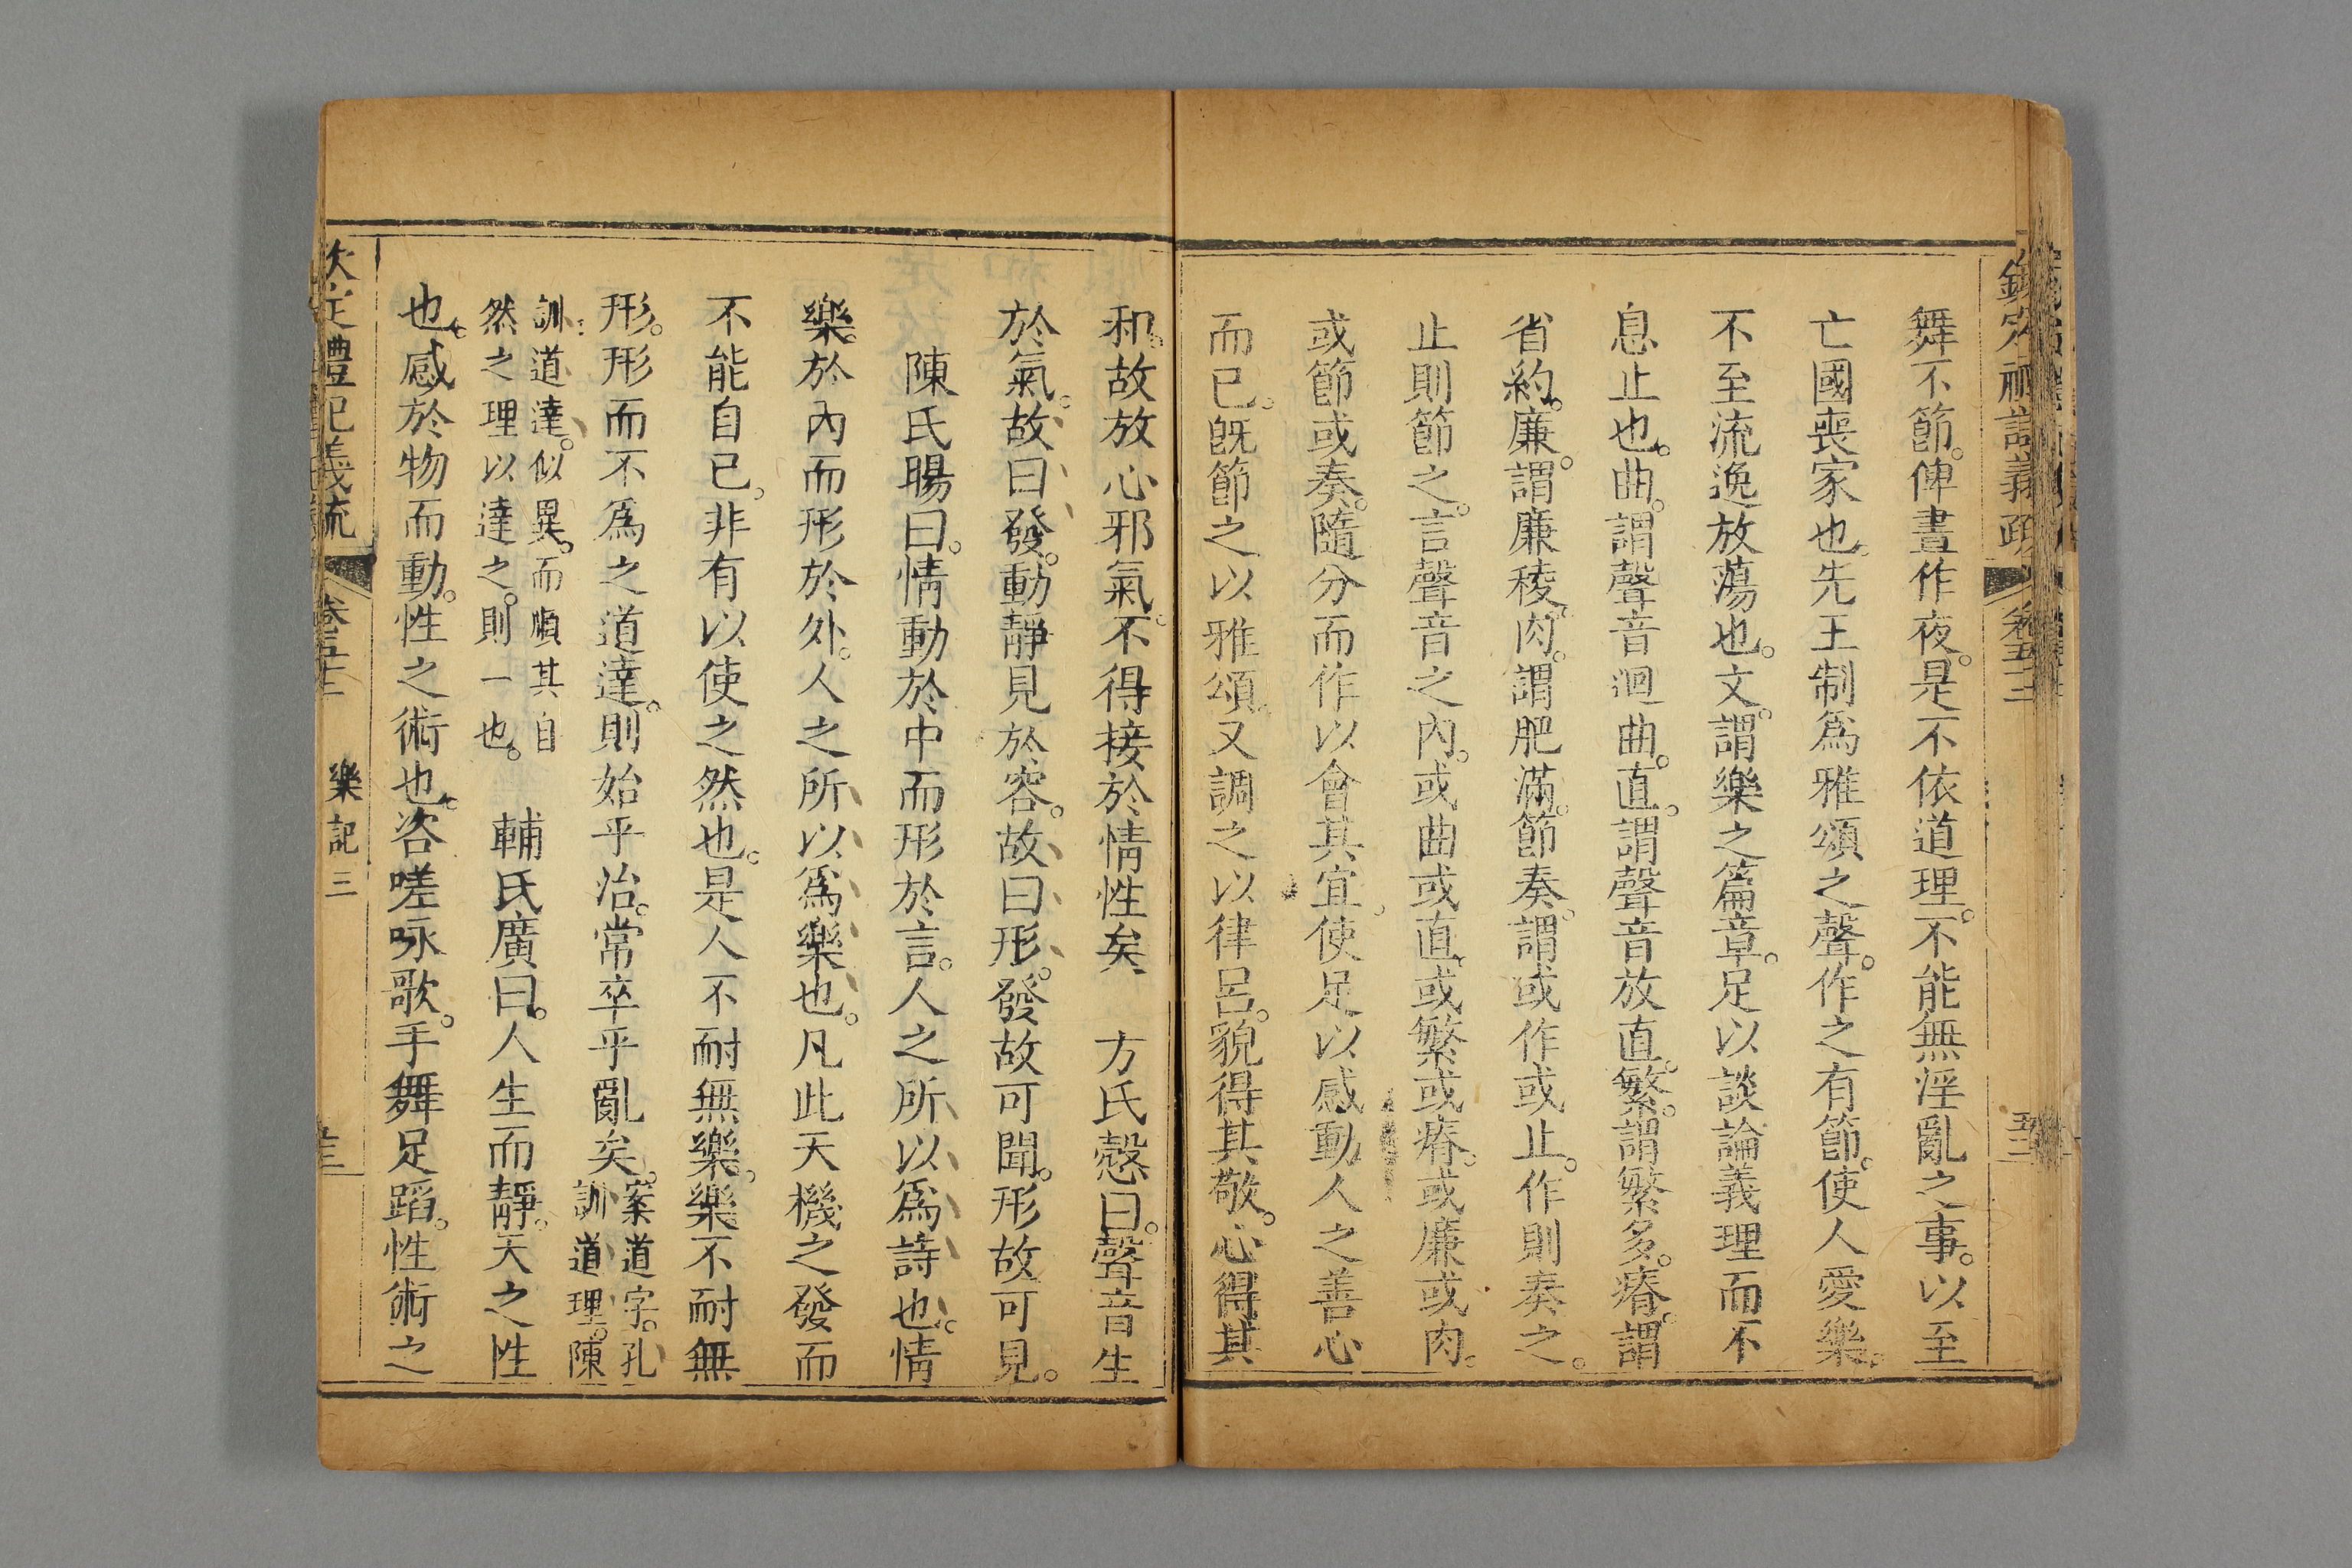 欽定禮記義疏 卷五十二
舞不節。俾晝作夜。是不依道理。不能無淫亂之事。以至
亡國喪家也。先王制爲雅頌之聲。作之有節。使人愛樂。
不至流逸放蕩也。文。謂樂之篇章。足以談論義理而不
息止也。曲。謂聲音迴曲。直。謂聲音放直。繁。謂繁多。瘠。謂
省約。廉。謂廉稜。肉。謂肥滿。節奏。謂或作或止。作則奏之。
止則節之。言聲音之內。或曲或直。或繁或瘠。或廉或肉。
或節或奏。隨分而作。以會其宜。使足以感動人之善心
而已。旣節之以雅頌。又調之以律呂。貌得其敬。心得其
和。故放心邪氣。不得接於情性矣 方氏慤曰。聲音生
於氣。故曰發。動靜見於容。故曰形。發故可聞。形故可見。
陳氏暘曰。情動於中而形於言。人之所以爲詩也。情
樂。於內而形於外。人之所以爲樂也。凡此天機之發而
不能自已。非有以使之然也。是人不耐無樂。樂不耐無
形。形而不爲之道達。則始乎治。常卒乎亂矣。案道字。孔
訓道理。陳
訓道達。似異。而順其自
然之理以達之。則一也。 輔氏廣曰。人生而靜。天之性
也。感於物而動。性之術也。咨嗟咏歌。手舞足蹈。性術之
欽定禮記義疏 卷五十二 樂記三